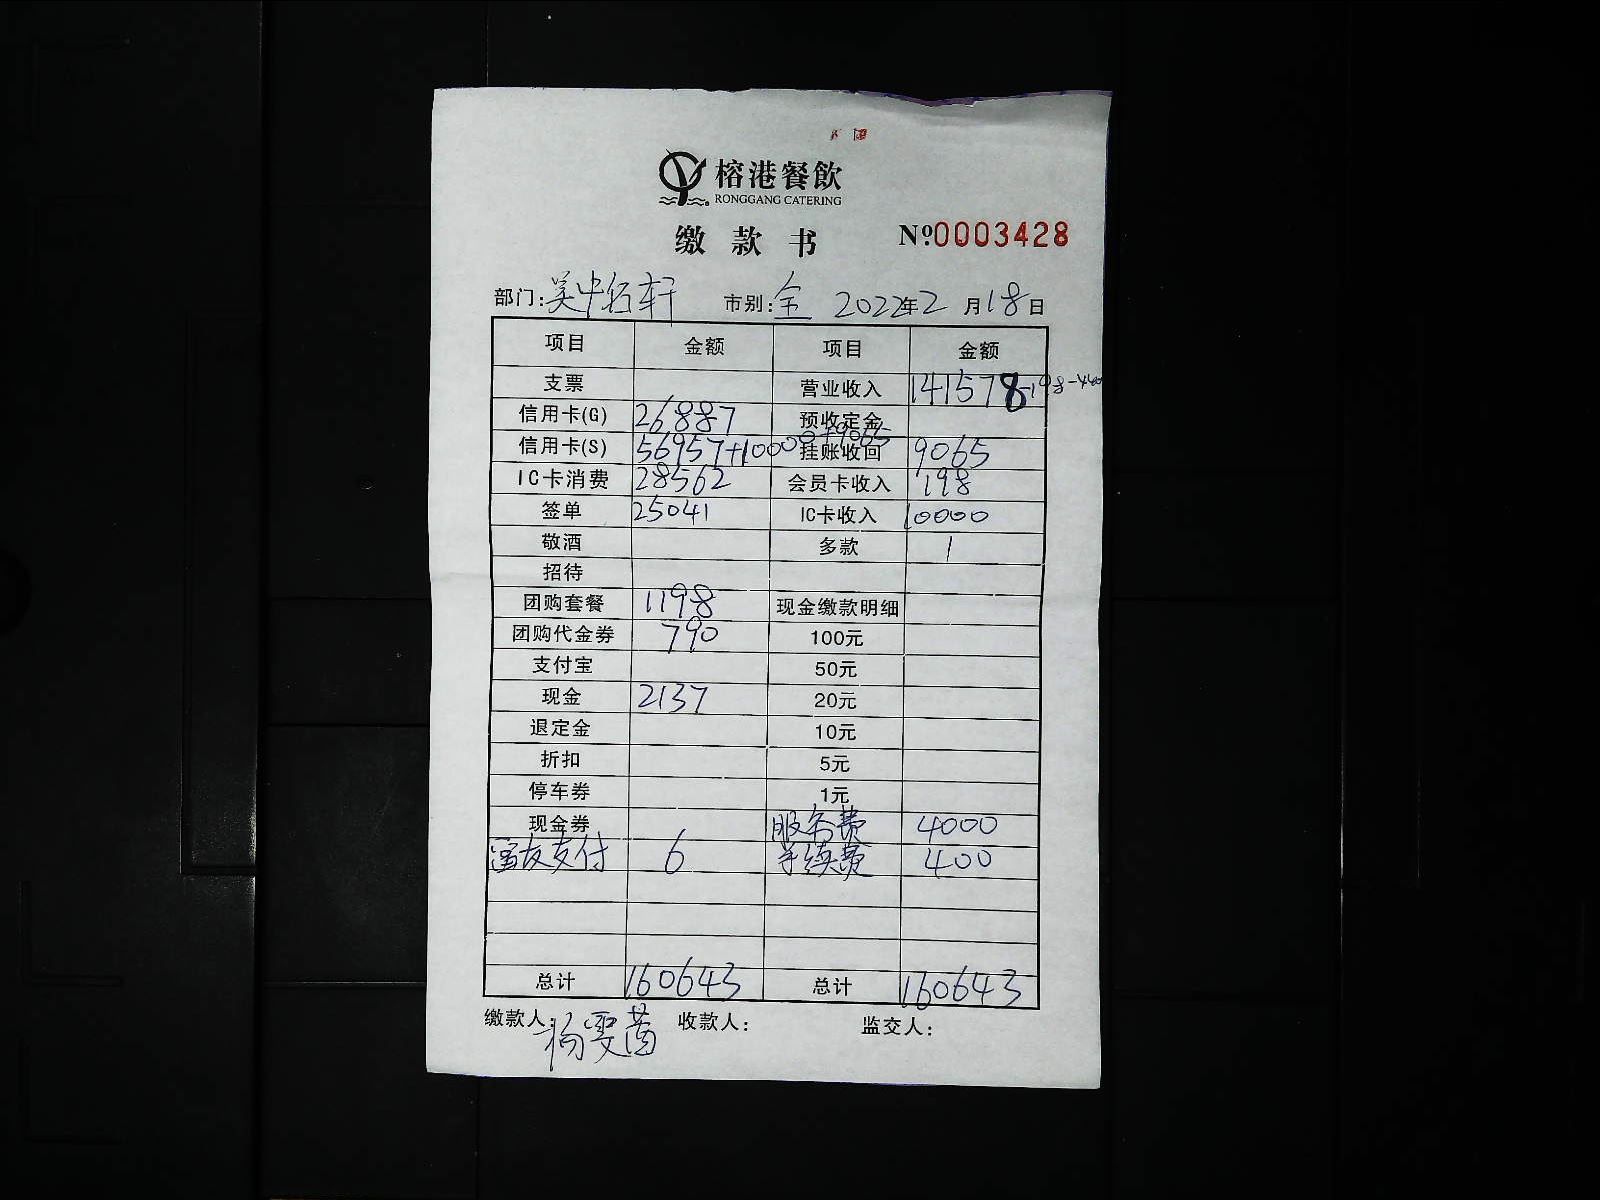 榕港餐飲
RONGGANG CATERING
缴款书 №0003428
部门: 吴中名轩 市别: 全 2022年2月18日
项目 金额 项目 金额
支票 营业收入 141578-198-4400
信用卡(G) 26887 预收定金
信用卡(S) 56957+10000+9065 挂账收回 9065
IC卡消费 28562 会员卡收入 198
签单 25041 IC卡收入 10000
敬酒 多款 1
招待
团购套餐 1198 现金缴款明细
团购代金券 790 100元
支付宝 50元
现金 2137 20元
退定金 10元
折扣 5元
停车券 1元
现金券 服务费 4000
支付 6 手续费 400
总计 160643 总计 160643
缴款人: 杨雯茵 收款人: 监交人: